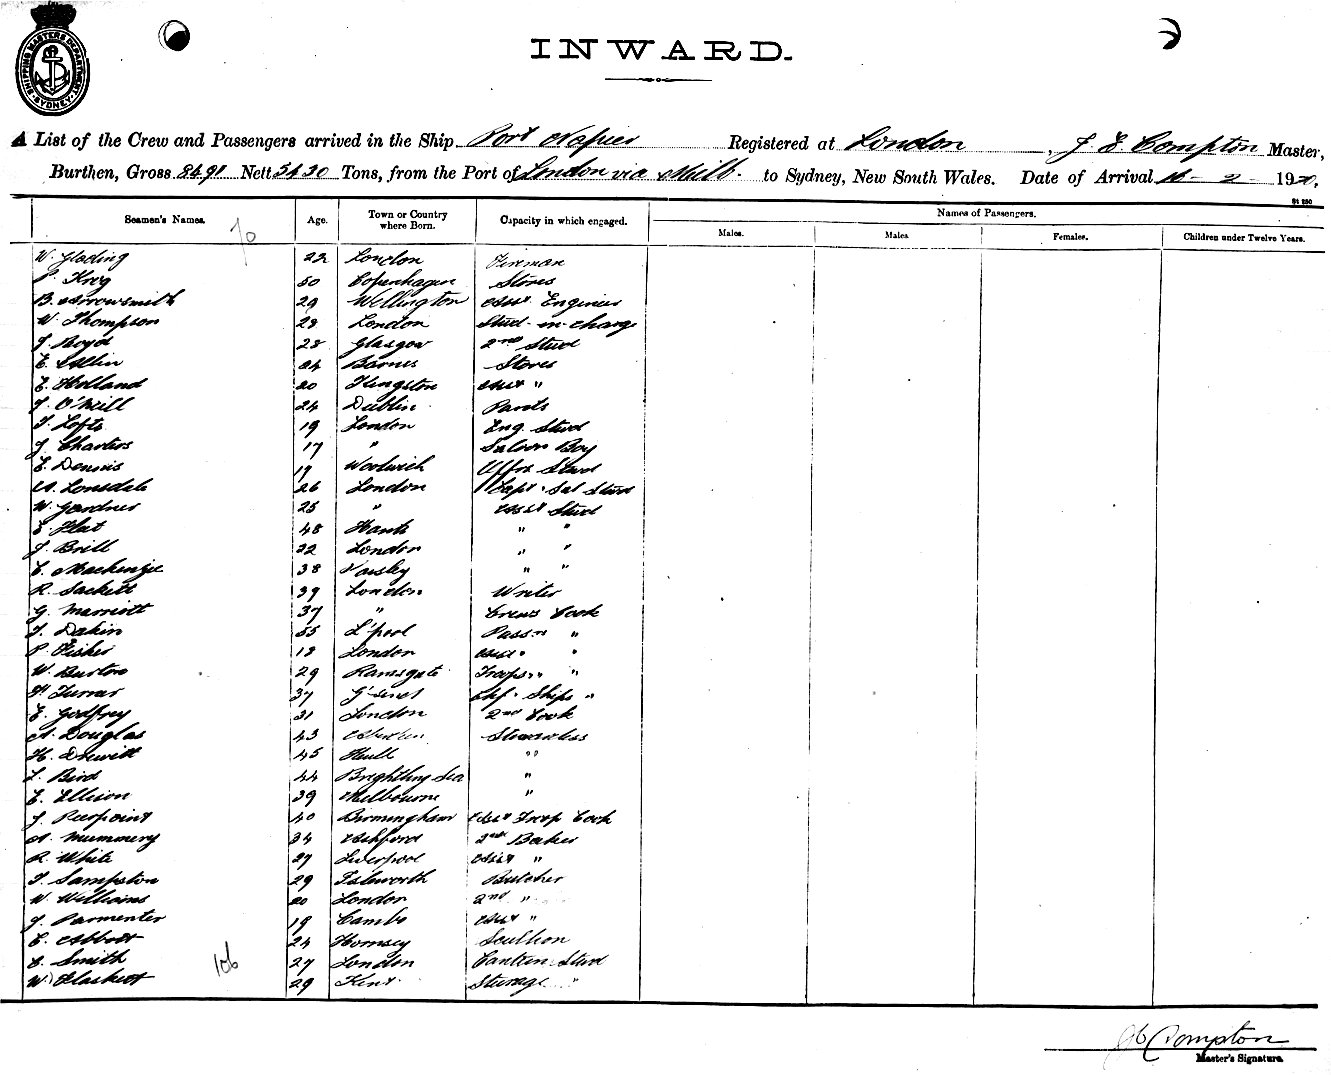 SHIPPING MASTERS DEPARTMENT SYDNEY
INWARD.
A List of the Crew and Passengers arrived in the Ship Port Napier Registered at London, J E Compton Master,
Burthen, Gross 8491 Nett Tons, from the Port of London via Melb. to Sydney, New South Wales. Date of Arrival 2 1920,
St 250
Seamen's Names. Age. Town or Country where Born. Capacity in which engaged. Names of Passengers.
Males. Males. Females. Children under Twelve Years.
70
W. Glading 22 London Fireman
P. Krog 50 Copenhagen Stores
B. Arrowsmith 29 Wellington Asst Engineer
W. Thompson 28 London Stud-in-charge
J. Boyd 28 Glasgow 2nd Stud
E. Allin 24 Barnes Stores
E. Holland 20 Kingston Asst "
J. O'Neill 24 Dublin Pants
T. Lofts 19 London Eng. Stud
J. Charters 17 " Saloon Boy
E. Dennis 19 Woolwich Offrs Stwd
A. Lonsdale 26 London Capt. Sal Stwd
W. Gardner 25 " Asst Stud
E. Flat 48 Hants " "
J. Brill 22 London " "
C. Mackenzie 38 Paisley " "
R. Sackett 39 London Writer
G. Marriott 37 " Crews Cook
T. Dakin 55 L'pool Passn "
P. Fisher 18 London Asst "
W. Burton 29 Ramsgate Troops "
Turner 37 Ships "
E. Godfrey 31 London 2nd Cook
A. Douglas 43 Aberdeen Stewardess
H. Drewitt 45 Hull "
L. Bird 44 Brightling Sea "
E. Ellison 39 Melbourne "
J. Pierpoint 40 Birmingham Asst Troop Cook
A. Mummery 34 Ashford 2nd Baker
R. White 27 Liverpool Asst "
T. Sampston 29 Isleworth Butcher
W. Williams 20 London 2nd "
J. Parmenter 19 Cambs Asst "
E. Abbott 24 Hornsey Scullion
C. Smith 27 London Canteen Stud
W. Hackett 29 Kent Sturage "
106
J E Compton
Master's Signature.